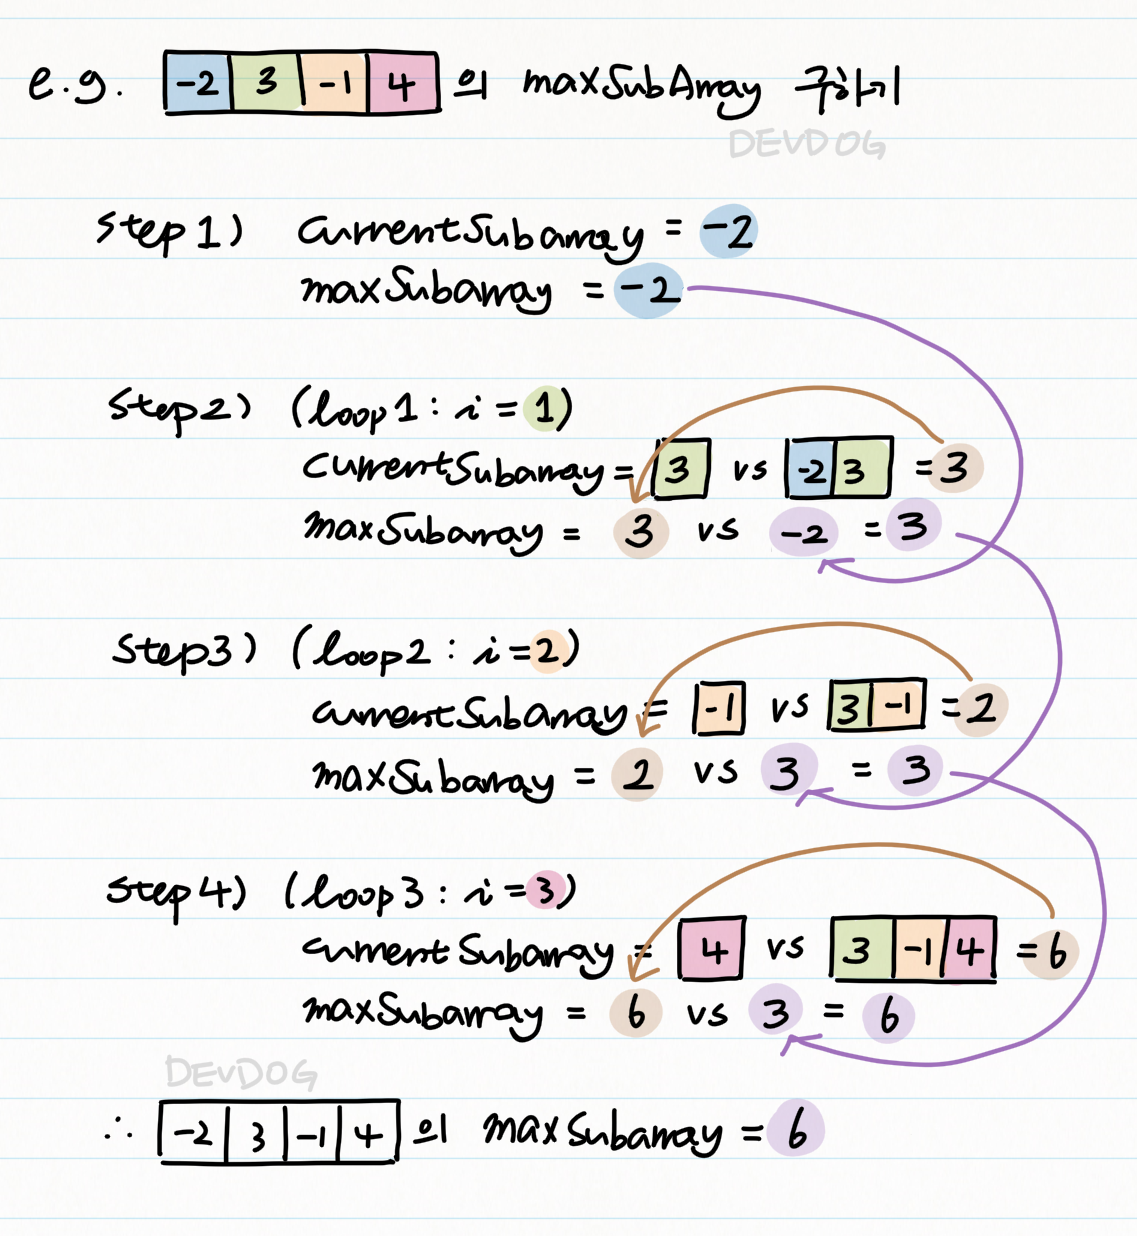 e.g. -2 3 -1 4 의 maxSubArray 구하기
DEVDOG
step1) currentSubarray = -2
maxSubarray = -2
step2) (loop1 : i = 1)
currentSubarray = 3 vs -2 3 = 3
maxSubarray = 3 vs -2 = 3
step3) (loop2 : i = 2)
currentSubArray = -1 vs 3 -1 = 2
maxSubarray = 2 vs 3 = 3
step4) (loop3 : i = 3)
currentSubarray = 4 vs 3 -1 4 = 6
maxSubarray = 6 vs 3 = 6
DEVDOG
∴ -2 3 -1 4 의 maxSubarray = 6